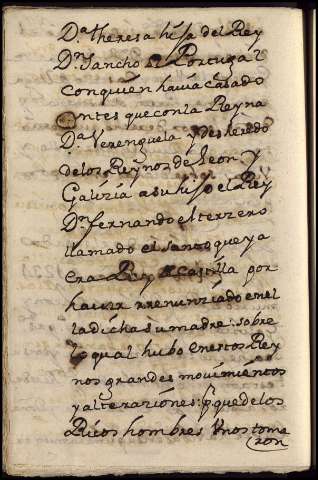 Dª theresa hija del Rey
Dⁿ Sancho de Portugal
Conquién havia Casado
antes que con la Reyna
Dª Verenguela y desheredo
de los Reynos de Leon y
Galizia a su hijo el Rey
Dⁿ fernando el terzero
llamado el santo que ya
era Rey de Castilla por
havér rrenunziádo en el
la dícha su madre: sobre
lo qual hubo en estos Rey
nos grandes movimientos
y alteraziónes: porque de los
Ricos hombres Unos toma
ron